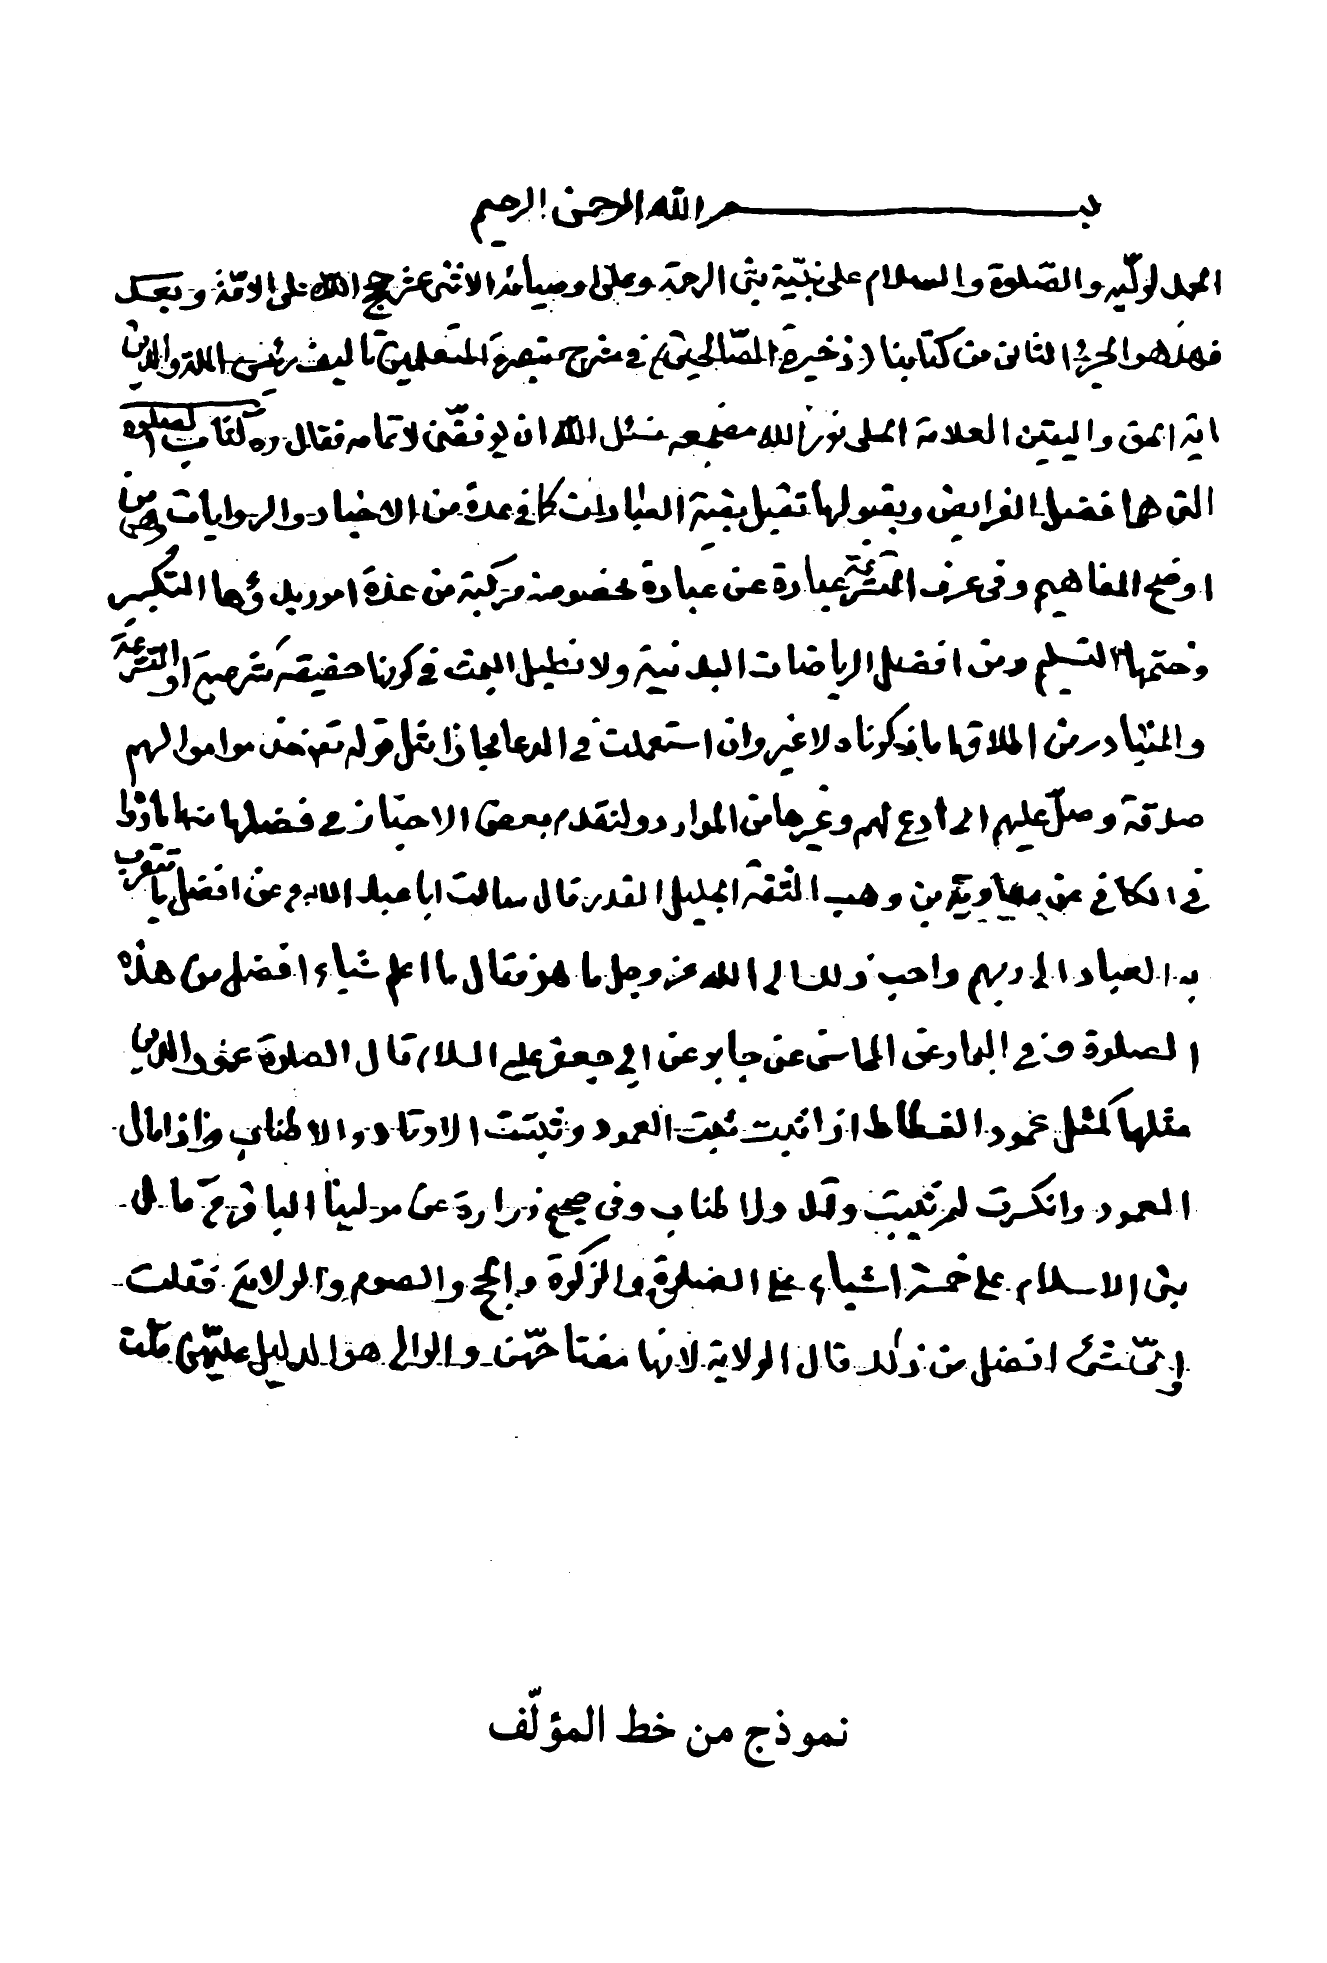 بسم الله الرحمن الرحيم
الحمد لوليّه والصّلوة والسلام على نبيّه نبى الرحمة وعلى اوصيائه الاثنى عشر حجج الله على الامّة وبعد
فهذا هو الجزء الثانى من كتابنا (ذخيرة الصّالحين) فى شرح تبصرة المتعلمين تاليف رئيس الملة والدين
اية الحق واليقين العلامة الحلى نور الله مضجعه نسئل الله ان يوفقنى لاتمامه فقال ره كتاب الصلوة
التى هى افضل الفرايض وبقبولها تقبل بقية العبادات كما فى عدة من الاخبار والروايات وهى من
اوضح المفاهيم وفى عرف المتشرعة عبارة عن عبادة مخصوصة مركبة من عدة امور يدل اولها التكبير
وختمها التسليم ومن افضل الرياضات البدنية ولا نطيل البحث فى كونها حقيقة شرعية او المتشرعة
والمتبادر من اطلاقها ما ذكرناه لا غير وان استعملت فى الدعا مجازا مثل قوله تع خذ من اموالهم
صدقة وصلّ عليهم اى ادع لهم وغيرها من الموارد ولنقدم بعض الاخبار فى فضلها منها ما
فى الكافى عن معاوية بن وهب الثقة الجليل القدر قال سالت ابا عبد الله ع عن افضل ما يتقرب
به العباد الى ربهم واحب ذلك الى الله عز وجل ما هو فقال ما اعلم شياء افضل من هذه
الصلوة و فى البحار عن المحاسن عن جابر عن ابى جعفر عليه السلام قال الصلوة عمود الدين
مثلها كمثل عمود الفسطاط اذا ثبت ثبت العمود وثبتت الاوتاد والاطناب واذا مال
العمود وانكسرت لم يثبت وتد ولا طناب وفى صحيح زرارة عن مولينا الباقر ع قال
بنى الاسلام على خمسة اشياء على الصلوة والزكوة والحج والصوم والولاية فقلت
واىّ شئ افضل من ذلك قال الولاية لانها مفتاحهّن والوالى هو الدليل عليهّن قلت
نموذج من خط المؤلّف